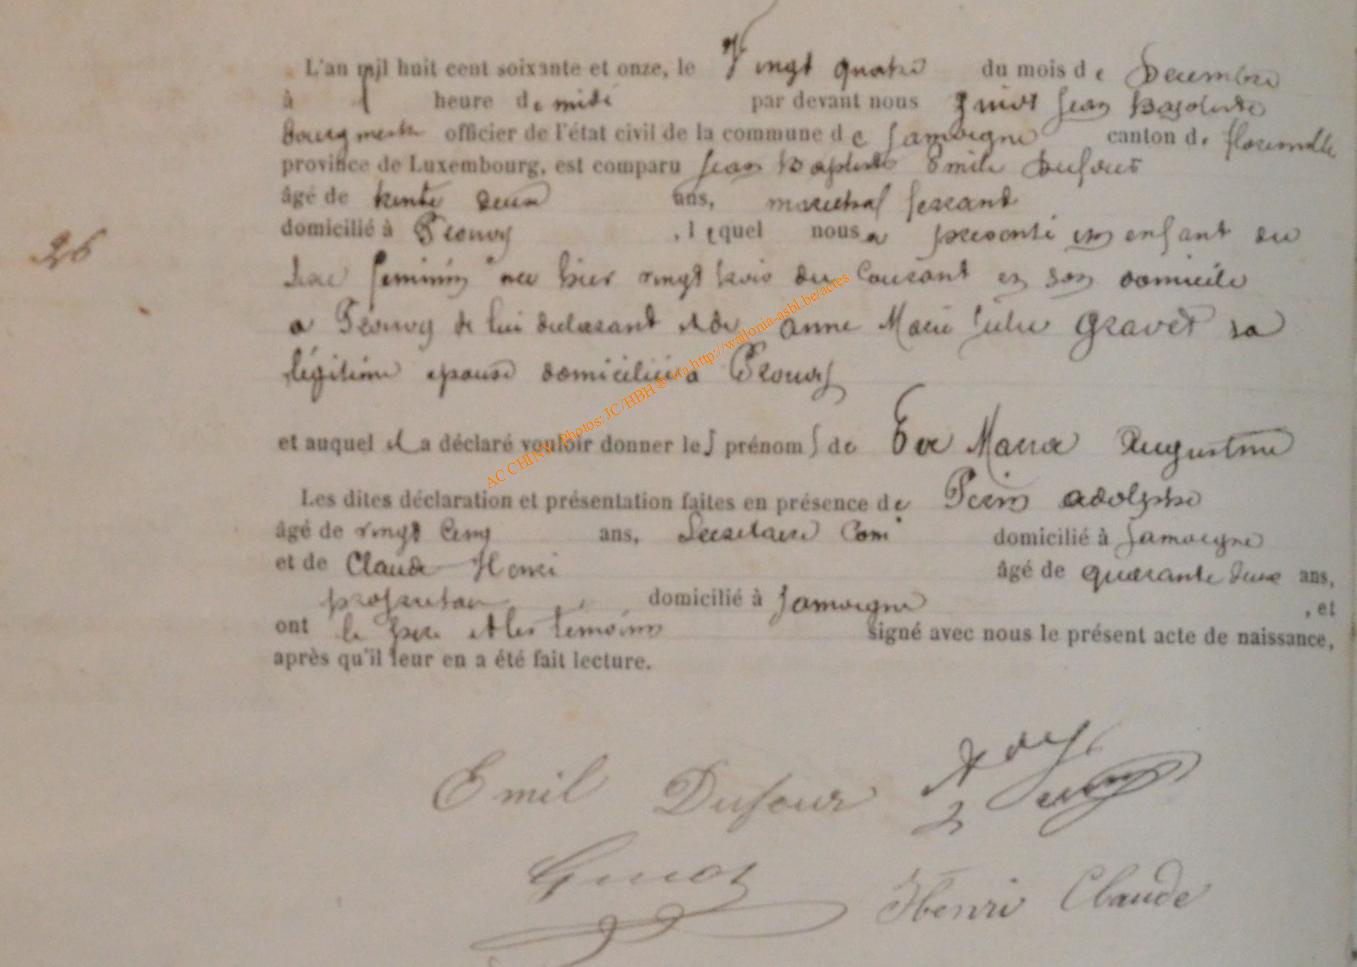 L'an mil huit cent soixante et onze, le Vingt quatre du mois de Decembre
à heure de midi par devant nous Guiot Jean Baptiste
bourgmestre officier de l'état civil de la commune de Jamoigne canton de florenville
province de Luxembourg, est comparu Jean Baptiste Emile Dufour
âgé de trente deux ans, marechal ferrant
domicilié à Prouvy, lequel nous a presenté un enfant du
sexe feminin nee hier vingt trois du Courant en son domicile
a Prouvy de lui declarant et de anne Marie Julie Gravet sa
légitime epouse domiciliée a Prouvy
et auquel il a déclaré vouloir donner les prénoms de Eve Maria Augustine
Les dites déclaration et présentation faites en présence de Perin adolphe
26
âgé de vingt Cinq ans, Secretaire Com domicilié à Jamoigne
et de Claude Henri âgé de quarante deux ans,
proprietaire, domicilié à Jamoigne, et
ont le pere et les temoins signé avec nous le présent acte de naissance,
après qu'il leur en a été fait lecture.
Emil Dufour
Guiot Henri Claude
AC CHINY Photos: JC/HBH © via http://wallonia-asbl.be/actes